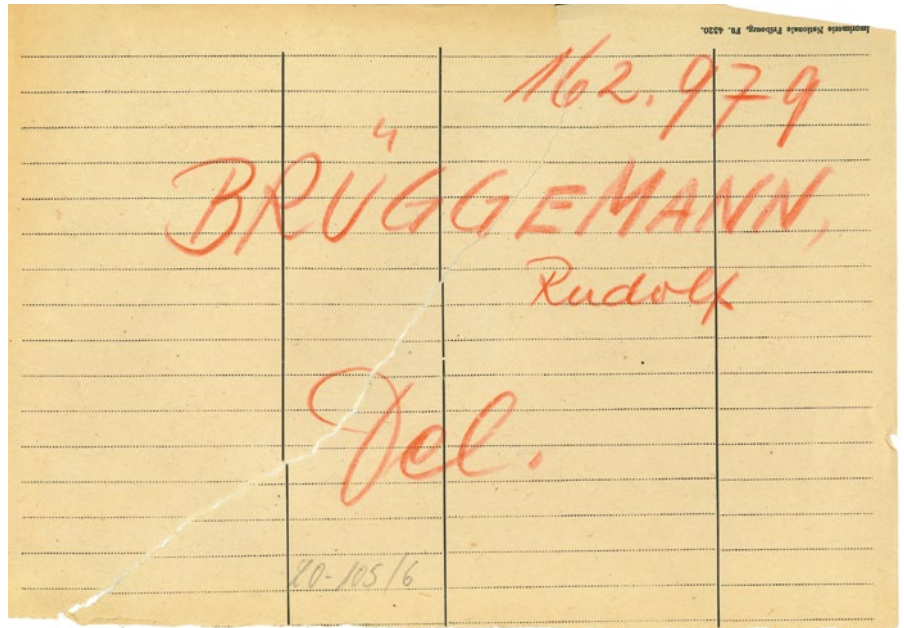 Imprimerie Nationale Fribourg. Fu. 4320.
162.979
BRÜGGEMANN,
Rudolf
Del.
20-105/6